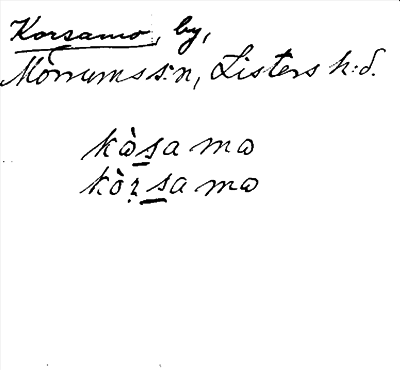 Korsamo, by,
Mörrums s:n, Listers h:d.
kò̱sa mω
kòṛsa mω